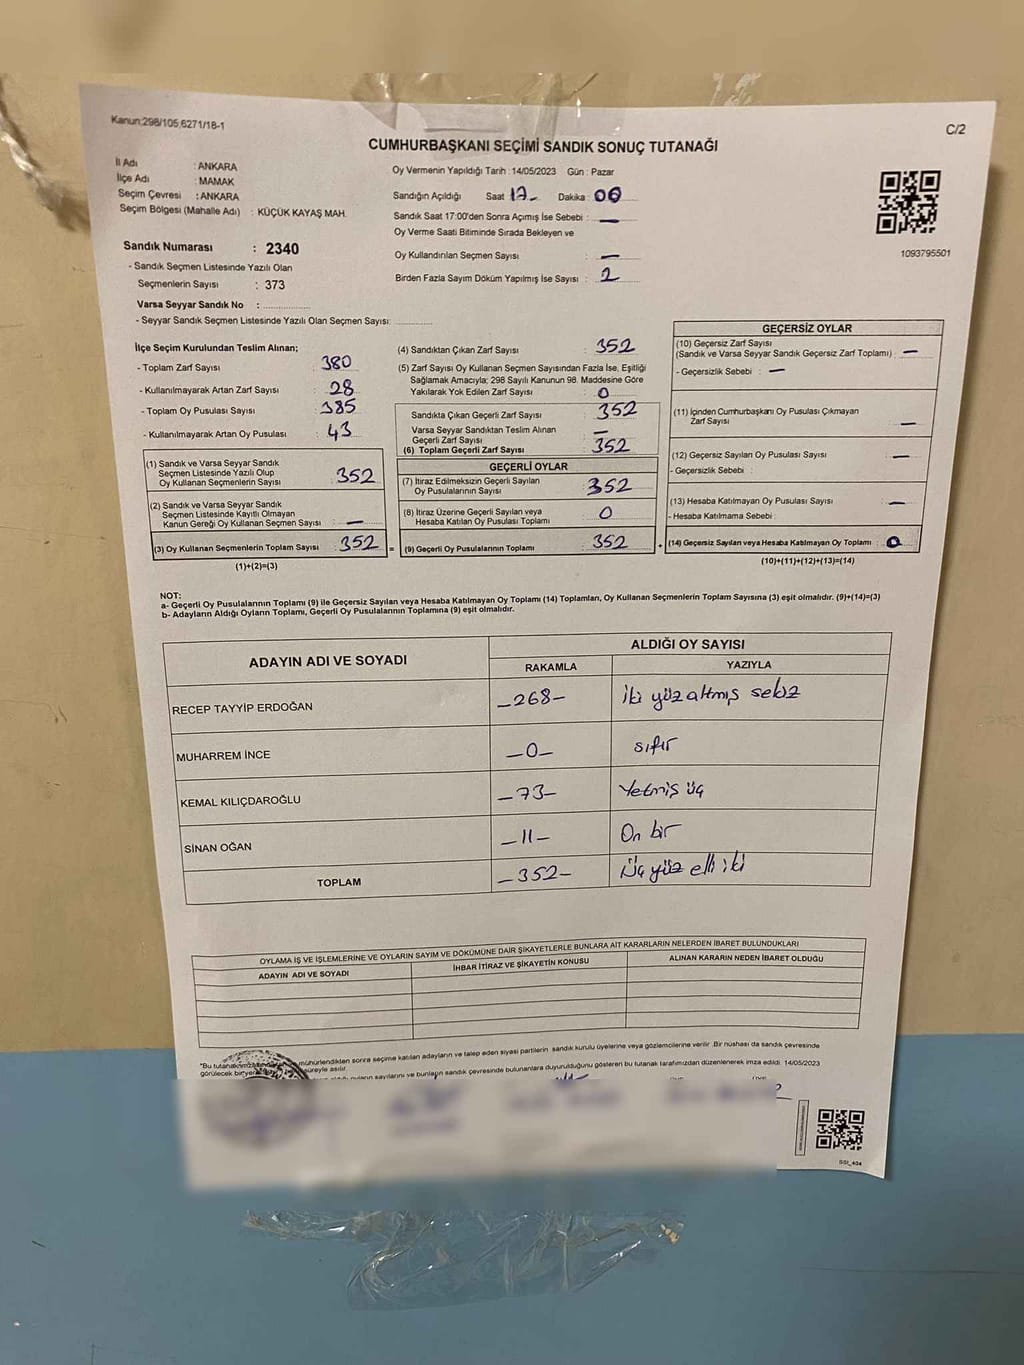 Kanun;298/105,6271/18-1
C/2
CUMHURBAŞKANI SEÇİMİ SANDIK SONUÇ TUTANAĞI
İl Adı : ANKARA
İlçe Adı : MAMAK
Seçim Çevresi : ANKARA
Seçim Bölgesi (Mahalle Adı) : KÜÇÜK KAYAŞ MAH.
Sandık Numarası : 2340
- Sandık Seçmen Listesinde Yazılı Olan
Seçmenlerin Sayısı : 373
Varsa Seyyar Sandık No :
- Seyyar Sandık Seçmen Listesinde Yazılı Olan Seçmen Sayısı:
Oy Vermenin Yapıldığı Tarih : 14/05/2023 Gün : Pazar
Sandığın Açıldığı Saat 17- Dakika : 00
Sandık Saat 17:00'den Sonra Açımış İse Sebebi : —
Oy Verme Saati Bitiminde Sırada Bekleyen ve
Oy Kullandırılan Seçmen Sayısı : —
Birden Fazla Sayım Döküm Yapılmış İse Sayısı : 2
1093795501
İlçe Seçim Kurulundan Teslim Alınan;
- Toplam Zarf Sayısı : 380
- Kullanılmayarak Artan Zarf Sayısı : 28
- Toplam Oy Pusulası Sayısı : 385
- Kullanılmayarak Artan Oy Pusulası : 43
(1) Sandık ve Varsa Seyyar Sandık
Seçmen Listesinde Yazılı Olup
Oy Kullanan Seçmenlerin Sayısı : 352
(2) Sandık ve Varsa Seyyar Sandık
Seçmen Listesinde Kayıtlı Olmayan
Kanun Gereği Oy Kullanan Seçmen Sayısı : —
(3) Oy Kullanan Seçmenlerin Toplam Sayısı : 352 =
(1)+(2)=(3)
(4) Sandıktan Çıkan Zarf Sayısı : 352
(5) Zarf Sayısı Oy Kullanan Seçmen Sayısından Fazla İse, Eşitliği
Sağlamak Amacıyla; 298 Sayılı Kanunun 98. Maddesine Göre
Yakılarak Yok Edilen Zarf Sayısı : 0
Sandıkta Çıkan Geçerli Zarf Sayısı : 352
Varsa Seyyar Sandıktan Teslim Alınan
Geçerli Zarf Sayısı : —
(6) Toplam Geçerli Zarf Sayısı : 352
GEÇERLİ OYLAR
(7) İtiraz Edilmeksizin Geçerli Sayılan
Oy Pusulalarının Sayısı : 352
(8) İtiraz Üzerine Geçerli Sayılan veya
Hesaba Katılan Oy Pusulası Toplamı : 0
(9) Geçerli Oy Pusulalarının Toplamı : 352 +
GEÇERSİZ OYLAR
(10) Geçersiz Zarf Sayısı
(Sandık ve Varsa Seyyar Sandık Geçersiz Zarf Toplamı) : —
- Geçersizlik Sebebi : —
(11) İçinden Cumhurbaşkanı Oy Pusulası Çıkmayan
Zarf Sayısı : —
(12) Geçersiz Sayılan Oy Pusulası Sayısı : —
- Geçersizlik Sebebi :
(13) Hesaba Katılmayan Oy Pusulası Sayısı : —
- Hesaba Katılmama Sebebi :
(14) Geçersiz Sayılan veya Hesaba Katılmayan Oy Toplamı : 0
(10)+(11)+(12)+(13)=(14)
NOT:
a- Geçerli Oy Pusulalarının Toplamı (9) ile Geçersiz Sayılan veya Hesaba Katılmayan Oy Toplamı (14) Toplamları, Oy Kullanan Seçmenlerin Toplam Sayısına (3) eşit olmalıdır. (9)+(14)=(3)
b- Adayların Aldığı Oyların Toplamı, Geçerli Oy Pusulalarının Toplamına (9) eşit olmalıdır.
ADAYIN ADI VE SOYADI
ALDIĞI OY SAYISI
RAKAMLA YAZIYLA
RECEP TAYYİP ERDOĞAN -268- İki yüz altmış sekiz
MUHARREM İNCE -0- sıfır
KEMAL KILIÇDAROĞLU -73- Yetmiş üç
SİNAN OĞAN -11- On bir
TOPLAM -352- Üç yüz elli iki
OYLAMA İŞ VE İŞLEMLERİNE VE OYLARIN SAYIM VE DÖKÜMÜNE DAİR ŞİKAYETLERLE BUNLARA AİT KARARLARIN NELERDEN İBARET BULUNDUKLARI
ADAYIN ADI VE SOYADI İHBAR İTİRAZ VE ŞİKAYETİN KONUSU ALINAN KARARIN NEDEN İBARET OLDUĞU
"Bu tutanak mühürlendikten sonra seçime katılan adayların ve talep eden siyasi partilerin sandık kurulu üyelerine veya gözlemcilerine verilir .Bir nüshası da sandık çevresinde
görülecek bir süreyle asılır.
oyların sayılarını ve bunların sandık çevresinde bulunanlara duyurulduğunu gösteren bu tutanak tarafımızdan düzenlenerek imza edildi. 14/05/2023
SSI_404